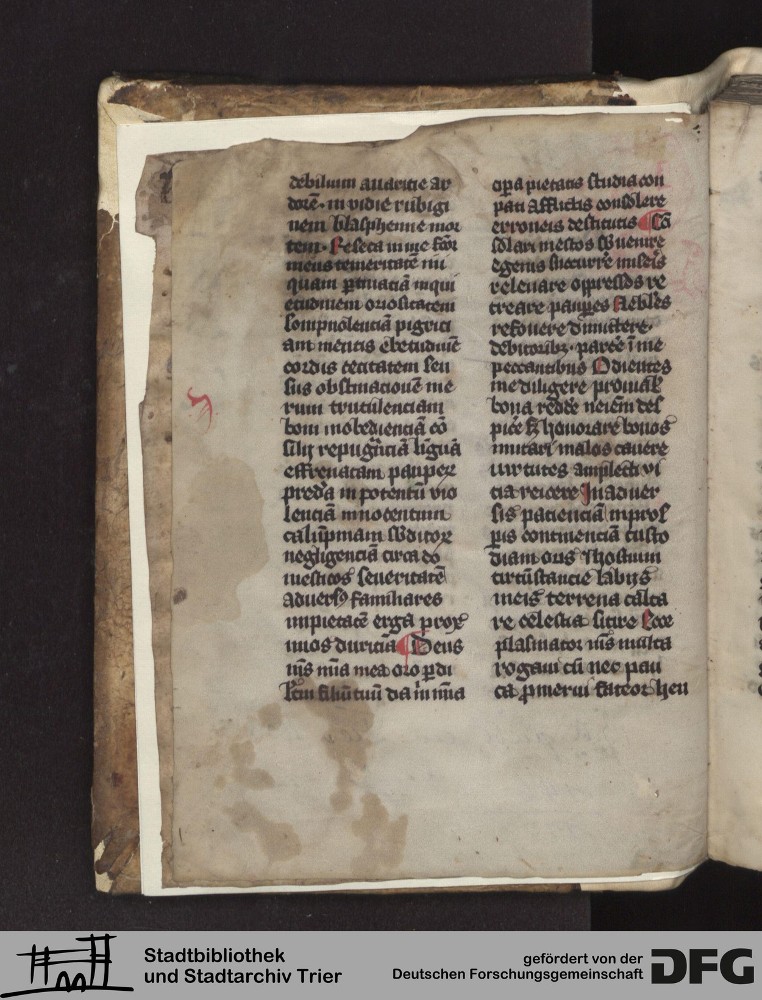 debilium auaritie ar
dorē · in vidie rubigi
nem blasphemie mor
tem · Reseca in me dn̄e
meus temeritatē ni
quam ꝑtinaciā iniqui
etudinem ociositatem
sompnolentiā pigrici
am mentis ebetudinē
cordis cecitatem sen
sus obstinacionē mo
rum truculenciam
boni inobedienciā cō
silij repugn̄ciā liguā
effrenatam pauper
preda in potentū vio
lenciam innocentum
calūpniam sb̄ditor
negligenciā circa do
mesticos seueritatē
aduersꝰ familiares
impietatē erga prox
imos duriciā Deus
mīs mīa mea oro ꝑ di
lc̄m filiū tuū da m̄ mīa
opa pietatis studia con
pati afflictis consolere
erroneis destitutis Cō
solari mestos sb̄uenire
egenis succurrē misēis
releuare opressos re
creare pauꝑes flebles
refouere dimittere ·
debitoribꝫ · parcē ī me
peccantibus Odientes
me diligere pro mal̄
bona reddē neīem des
picē sꝫ honorare bonos
imitari malos cauere
uirtutes amplecti vi
cia reicere In aduer
sis pacienciā in pros
ꝑis continenciā custo
diam oris ⁊ hostium
circūstancie labijs
meis terrena calca
re celestia sitire Ecce
plasmator m̄s multa
rogaui cū nec pau
ca ꝓmerui fateor heu
Stadtbibliothek
und Stadtarchiv Trier
gefördert von der
Deutschen Forschungsgemeinschaft
DFG